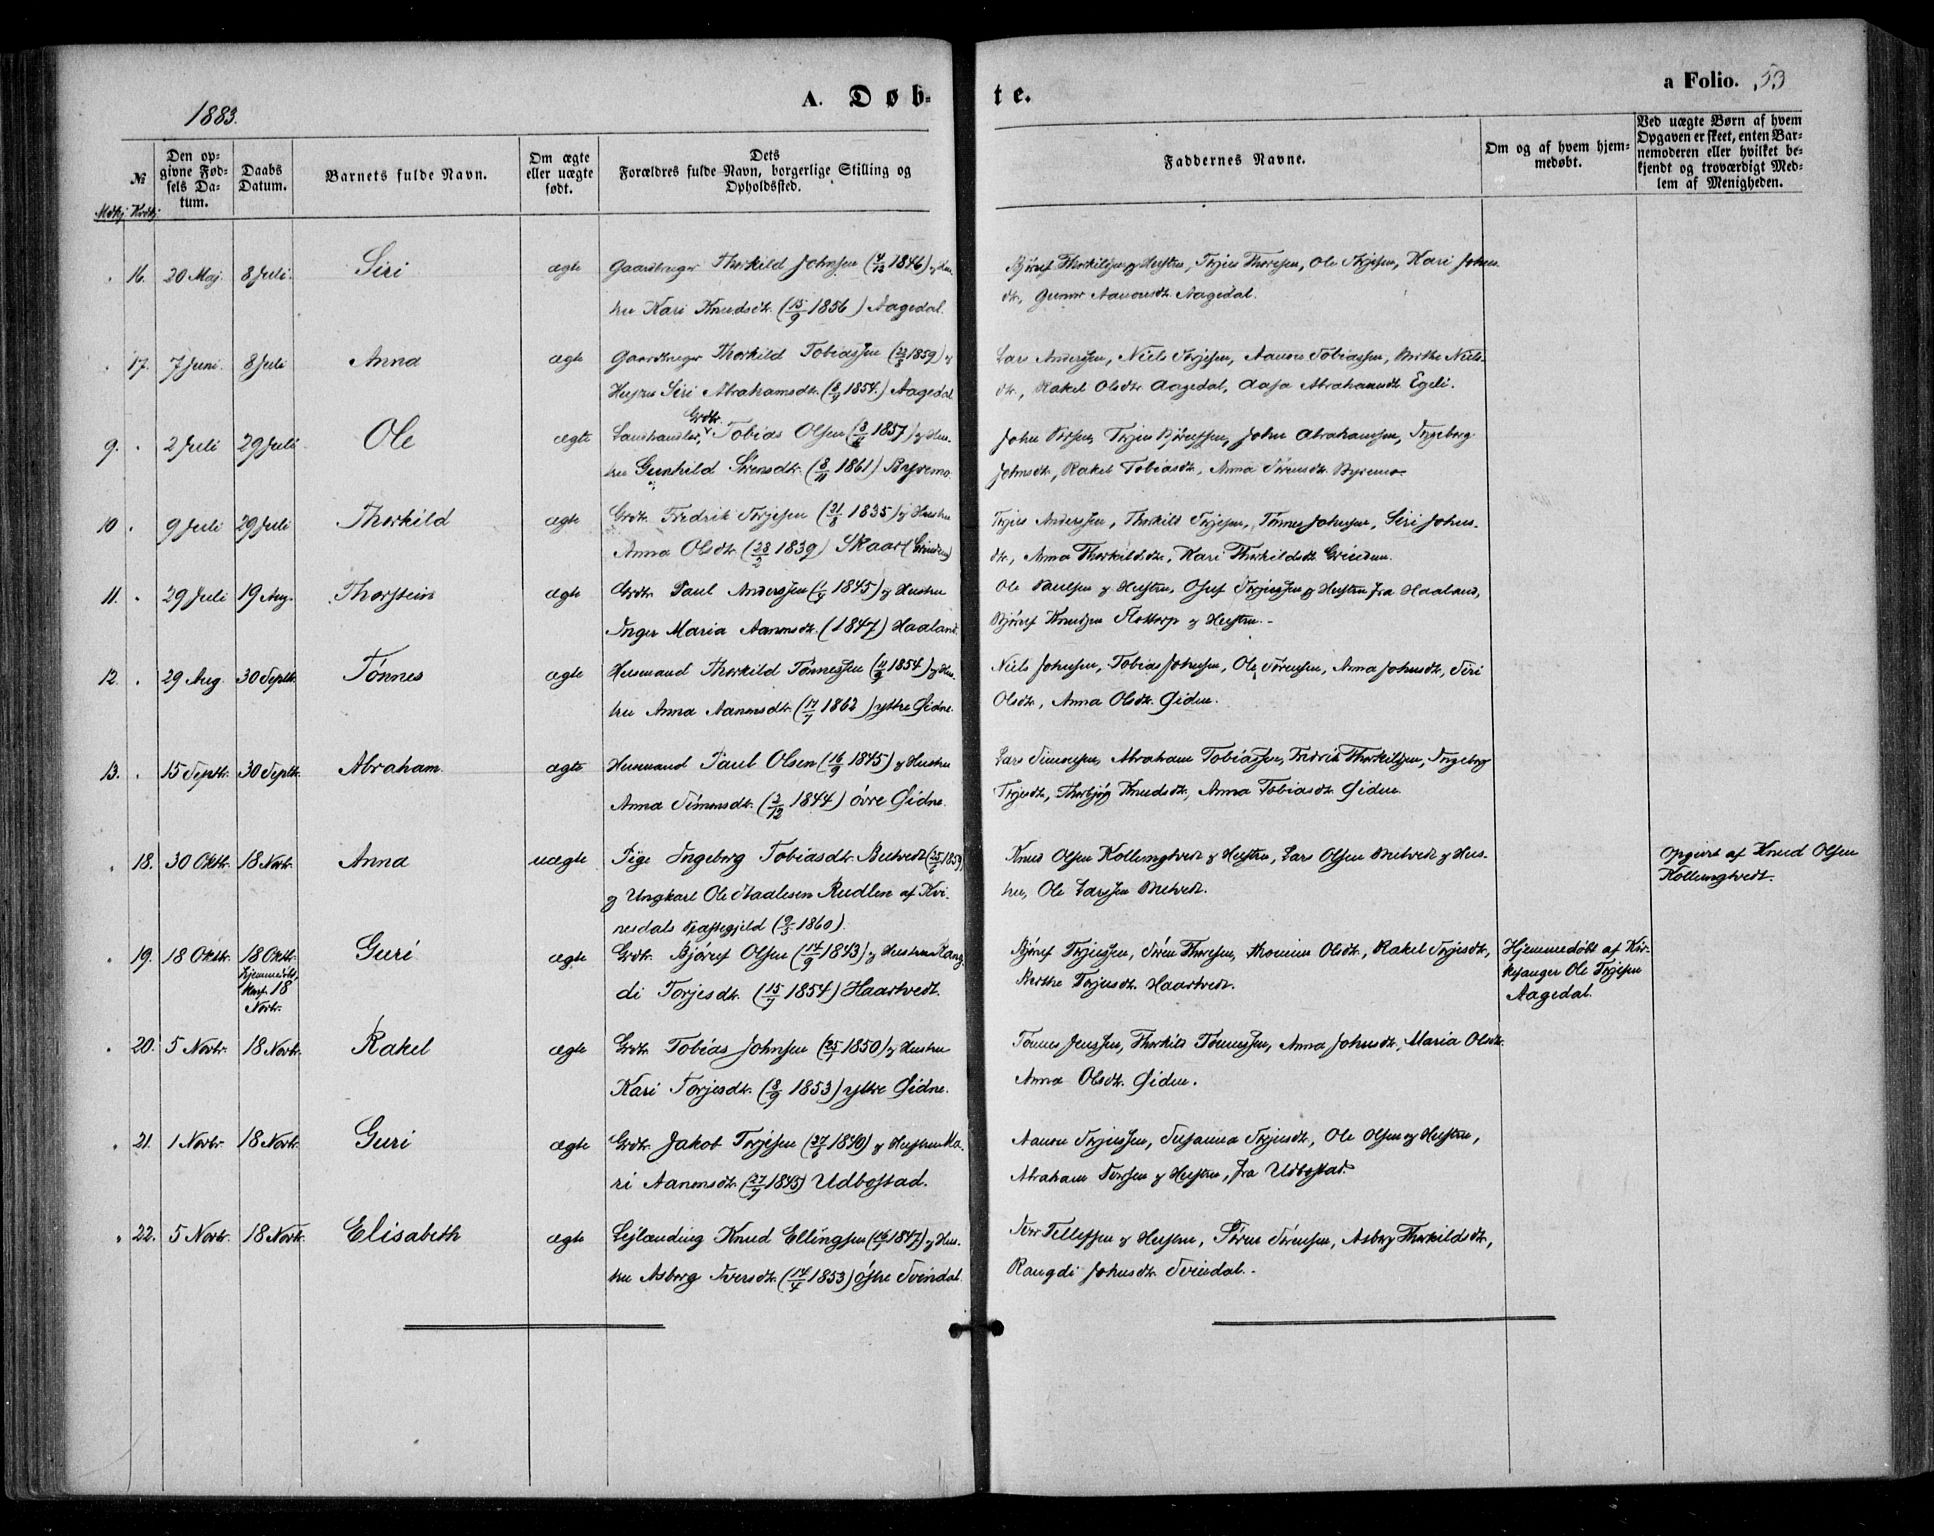 1883.
A. Døb-
te.
a Folio. 53
№
Mdkj Krdkj
Den op-
givne Fød-
sels Da-
tum.
Daabs
Datum.
Barnets fulde Navn.
Om ægte
eller uægte
født.
Dets
Forældres fulde Navn, borgerlige Stilling og
Opholdssted.
Faddernes Navne.
Om og af hvem hjem-
medøbt.
Ved uægte Børn af hvem
Opgaven er skeet, enten Bar-
nemoderen eller hvilket be-
kjendt og troværdigt Med-
lem af Menigheden.
16. 20 Maj. 8 Juli. Siri ægte Gaardbruger Thorkild Johnsen (1846) og Hu-
stru Kari Knudsdtr. (15/9 1856) Aagedal.
Bjøruf Thorkildsen og Hustru, Terjus Thoresen, Ole Terjesen, Kari Johns-
dtr, Gunvor Aanonsdtr. Aagedal.
17. 7 Juni. 8 Juli Anna ægte Gaardbruger Thorkild Tobiassen (1859) og
Hustru Siri Abrahamsdtr. (1854.) Aagedal
Lars Anderssen, Niels Terjesen, Aanon Tobiassen, Birthe Niels-
dtr., Rakel Olsdtr Aagedal, Aasa Abrahamsdtr. Egeli.
9. 2 Juli 29 Juli Ole ægte Landhandler, Grdbr. Tobias Olsen (1857) og Hu-
stru Gunhild Sørensdtr. (8/11 1861) Byremo.
John Terjesen, Terjus Bjørufssen, John Abrahamsen, Ingeborg
Johnsdtr, Rakel Tobiasdtr, Anna Sørensdtr. Byremo
10. 9 Juli 29 Juli Thorkild ægte Grdbr. Fredrik Torjesen (21/8 1835) og Hustru
Anna Olsdtr. (28/2 1839) Skaar (Grindem)
Terjus Anderssen, Thorkild Terjesen, Tønnes Johnsen, Siri Johns-
dtr, Anna Thorkildsdtr, Kari Thorkildsdtr Grindem
11. 29 Juli 19 Aug. Thorstein ægte Grdbr. Paul Anderssen (1845) og Hustru
Inger Maria Aanensdtr. (1847) Haaland.
Ole Paulsen og Hustru, Osuf Terjussen og Hustru fra Haaland,
Bjøruf Knudsen Flottorp og Hustru.
12. 29 Aug. 30 Septbr. Tønnes ægte Husmand Thorkild Tønnessen (1854) og Hu-
stru Anna Aanensdtr. (17/7 1862) ytre Øidne.
Niels Johnsen, Tobias Johnsen, Ole Sørensen, Anna Johnsdtr, Siri
Olsdtr, Anna Olsdtr. Øidne.
13. 15 Septbr. 30 Septbr. Abraham. ægte Husmand Paul Olsen (16/9 1845) og Hustru
Anna Simensdtr. (2/12 1844) øvre Øidne.
Lars Simonsen, Abraham Tobiassen, Fredrik Thorkildsen, Ingeborg
Terjesdtr, Thorbjøg Knudsdtr, Anna Tobiasdtr. Øidne.
18. 30 Oktbr. 18 Novbr. Anna uægte Pige Ingeborg Tobiasdtr. (1859)
og Ungkarl Ole Staalesen Rudlen af Kvi-
nesdals Præstegjeld (1860).
Knud Olsen Kollungtvedt og Hustru, Lars Olsen og Hus-
tru, Ole Larssen
Opgivet af Knud Olsen
Kollungtvedt.
19. 18 Oktbr. 18 Oktbr.
hjemmedøbt,
Konf. 18
Novbr.
Guri ægte Grdbr. Bjøruf Olsen (14/9 1843) og Hustru Rang-
di Torjesdtr. (15/7 1854) Haartvedt.
Bjøruf Terjussen, Søren Thoresen, Olsdtr, Rakel Terjesdtr,
Berthe Terjusdtr. Haartvedt.
Hjemmedøbt af Kir-
kesanger Ole Terjesen
Aagedal.
20. 5 Novbr. 18 Novbr. Rakel ægte Grdbr. Tobias Johnsen (25/7 1850) og Hustru
Kari Torjesdtr. (8/9 1853) ytre Øidne.
Tønnes Jenssen, Thorkild Tønnessen, Anna Johnsdtr, Maria Olsdtr.
Anna Olsdtr. Øidne.
21. 1 Novbr. 18 Novbr. Guri ægte Grdbr. Jakob Torjesen (1840) og Hustru Ma-
ri Aanensdtr. (27/9 1845) Udbøstad.
Aanon Terjussen, Susanna Terjusdtr, Ole Olsen og Hustru,
Abraham Iversen og Hustru, fra Udbøstad.
22. 5 Novbr. 18 Novbr. Elisabeth ægte Lejlænding Knud Ellingsen (1847) og Hus-
tru Asborg Iversdtr. (14/4 1853) østre Svindal.
Iver Tellefsen og Hustru, Søren Sørensen, Asborg Thorkildsdtr,
Rangdi Johnsdtr. Svindal.